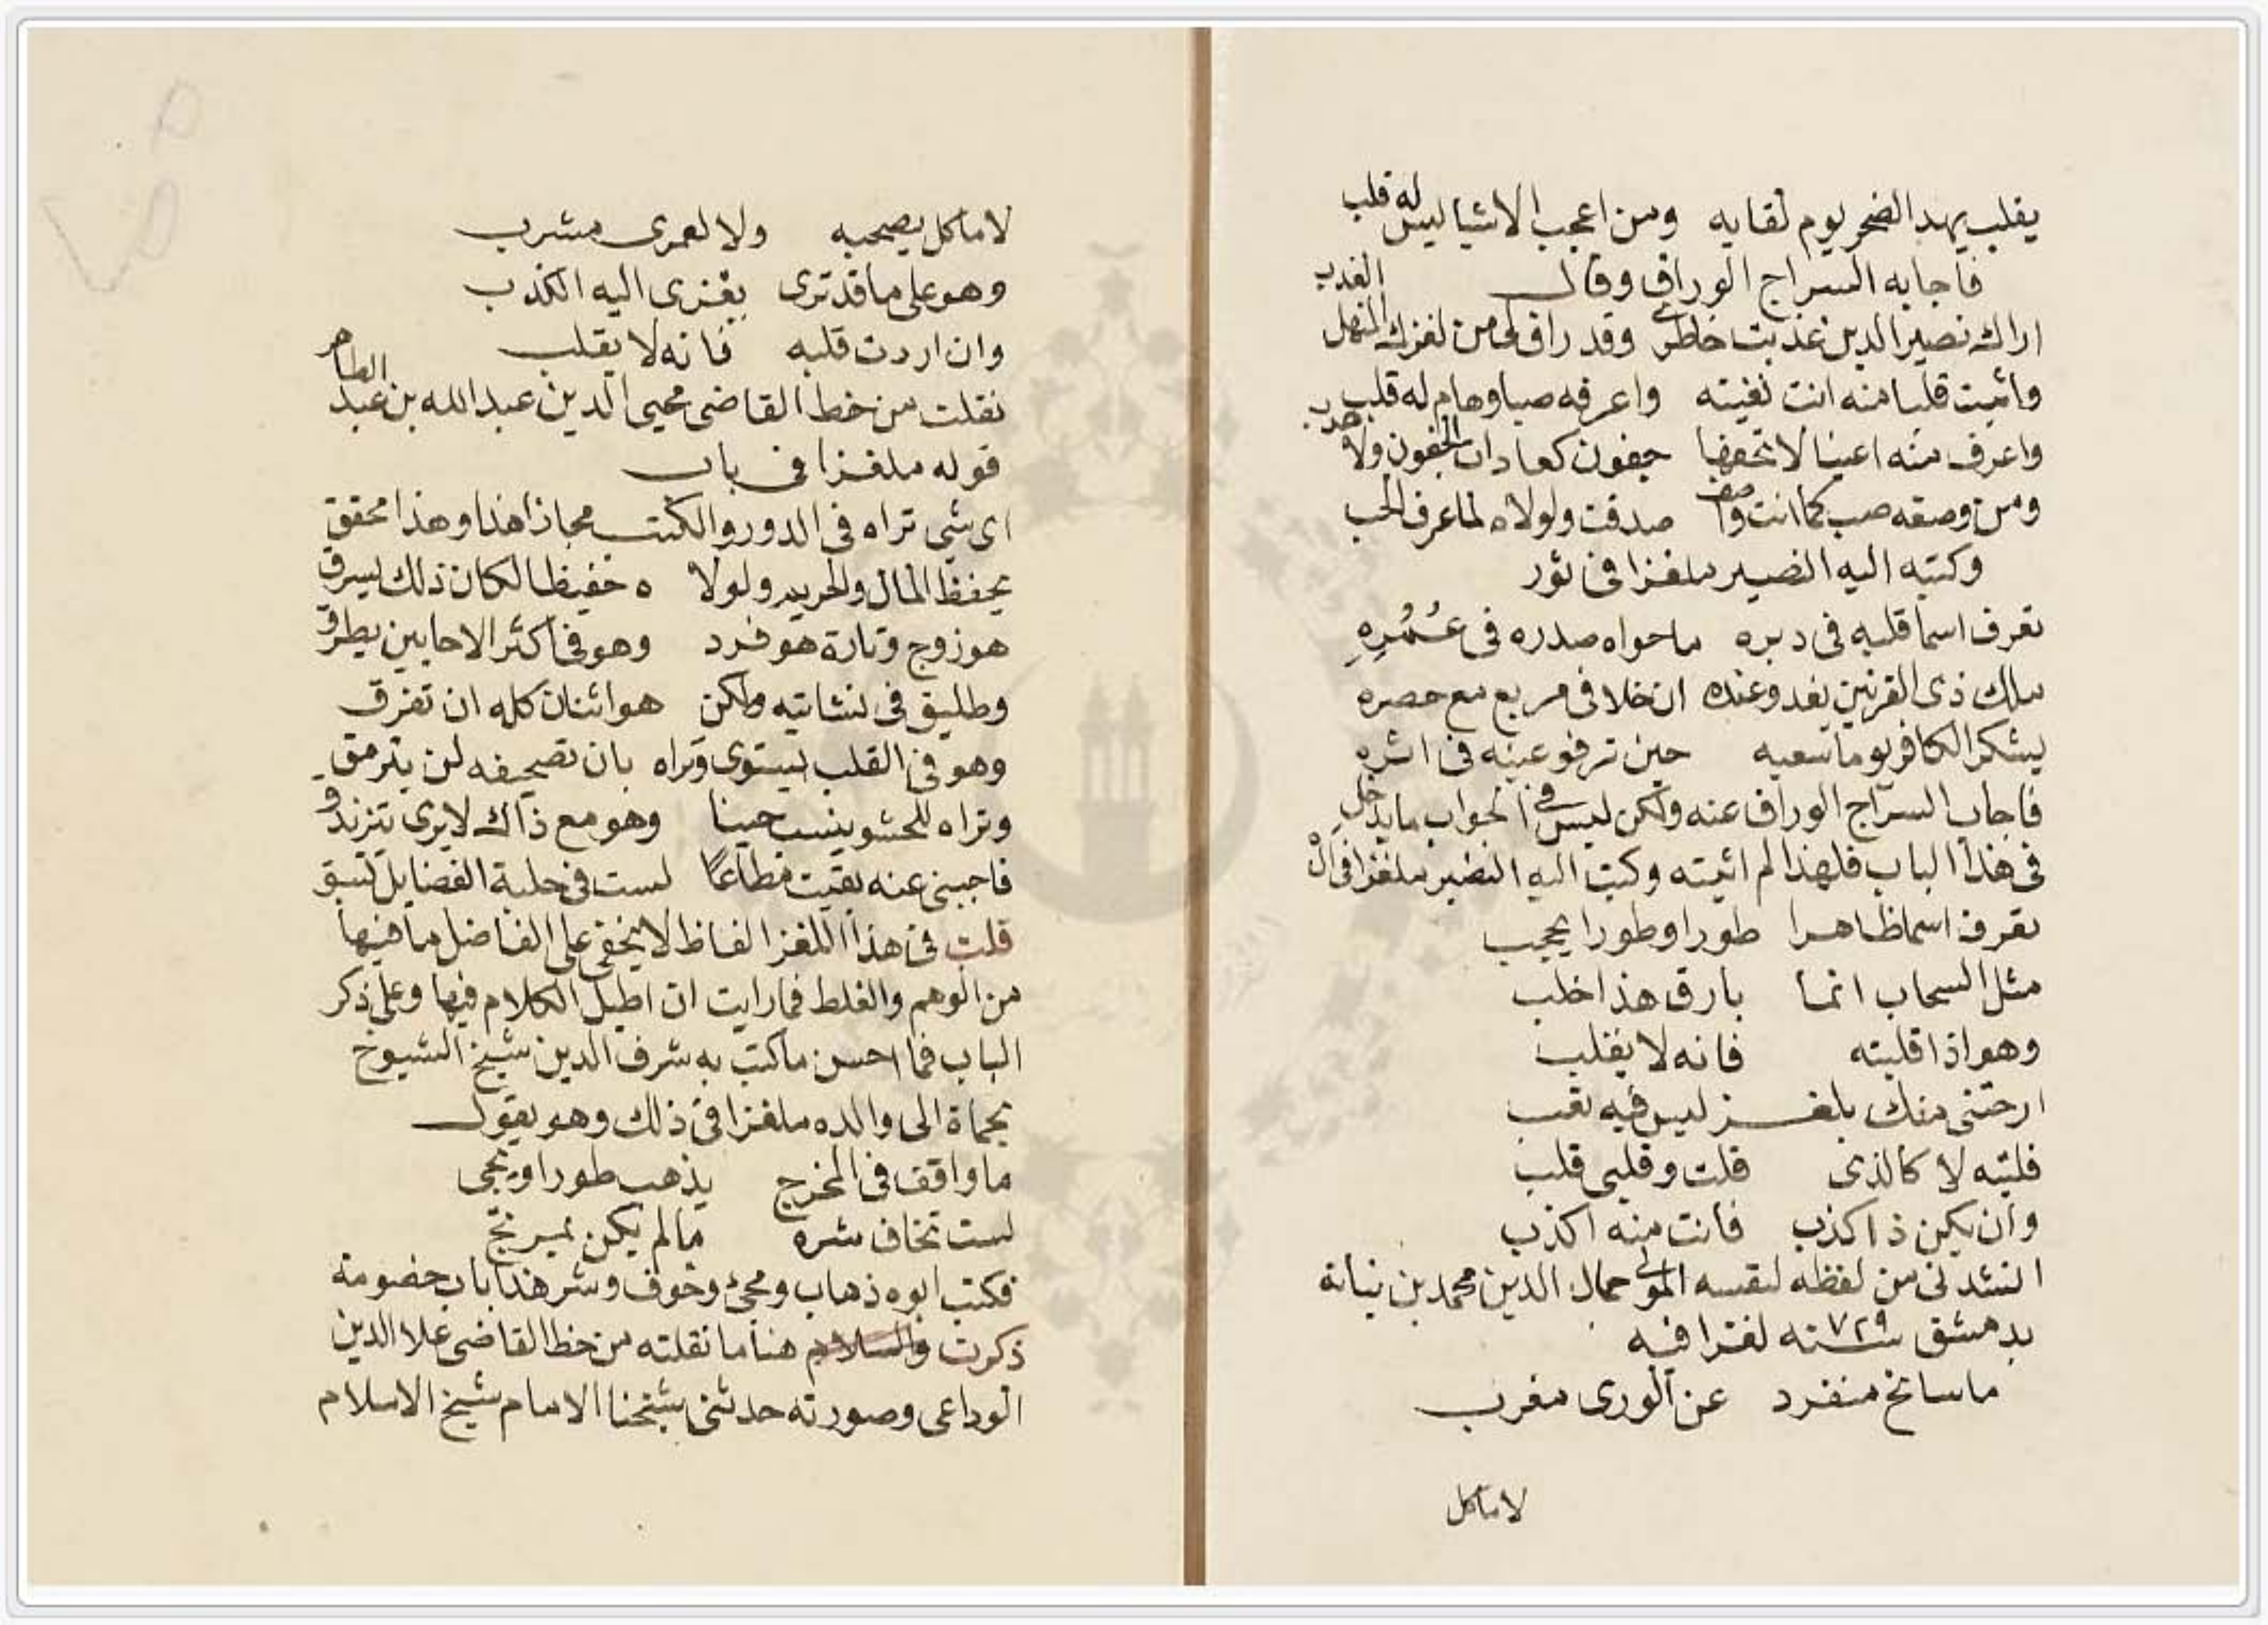 يقلب يهد الضحر يوم لقايه ومن اعجب الاشيا ليس له قلب
فاجابه السراج الوراق وقال
اراك نصير الدين عذبت خاطري وقد راق لي من لغزك المنهل العذب
واثبت قلبا منه انت نفيته واعرفه صبا وهام له قلب
واعرف منه اعينا لا تحفها جفون كعادات الجفون ولا هدب
ومن وصفه صب كما انت واصف صدقت ولولاه لما عرف الحب
وكتبه اليه النصير ملغزا في ثور
تعرف اسما قلبه في دبره ما حواه صدره في عُمُرِهِ
ملك ذي القرنين يغدو عنده ان خلا في مربع مع حصره
يشكر الكافر يوما سعيه حين ترفو عينه في اثره
فاجاب السراج الوراق عنه ولكن ليس في الجواب ما يدخل
في هذا الباب فلهذا لم اثبته وكتب اليه النصير ملغزا في ال
تعرف اسما ظاهرا طورا وطورا يحجب
مثل السحاب انما بارق هذا خلب
وهو اذا قلبته فانه لا يقلب
ارحتني منك بلغز ليس فيه تعب
قلبته لا كالذي قلت وقلبي قلب
وان يكن ذا كذب فانت منه اكذب
انشدني من لفظه لنفسه المولى جمال الدين محمد بن نباتة
بدمشق سنة ٧٢٩ لغزا فيه
ما سانح منفرد عن الورى مغرب
لا ماكل
لا ماكل يصحبه ولا لعمري مشرب
وهو على ما قد ترى يعزى اليه الكذب
وان اردت قلبه فانه لا يقلب
نقلت من خط القاضي محيي الدين عبد الله بن عبد الظاهر
قوله ملغزا في باب
اي شي تراه في الدور والكتب مجازا هذا وهذا محقق
يحفظ المال والحريم ولولا ه حفيظا لكان ذلك يسرق
هو زوج وتارة هو فرد وهو في اكثر الاحايين يطرق
وطليق في نشاتيه ولكن هو اثنان كله ان تفرق
وهو في القلب يستوي وتراه بان تصحيفه لمن يترمق
وتراه للحشو ينسب حينا وهو مع ذاك لا يرى يتزندق
فاجبني عنه بقيت مطاعًا لست في حلبة الفضايل تسبق
قلت في هذا اللغز الفاظ لا يخفى على الفاضل ما فيها
من الوهم والغلط فما رايت ان اطيل الكلام فيها وعلى ذكر
الباب فما احسن ما كتب به شرف الدين شيخ الشيوخ
بحماة الى والده ملغزا في ذلك وهو يقول
ما واقف في المخرج يذهب طورا ويجي
لست تخاف شره ما لم يكن بمرتج
فكتب ابوه ذهاب ومجئ وخوف وشر هذا باب خصومة
ذكرت والسلام هنا ما نقلته من خط القاضي علا الدين
الوداعي وصورته حدثني شيخنا الامام شيخ الاسلام